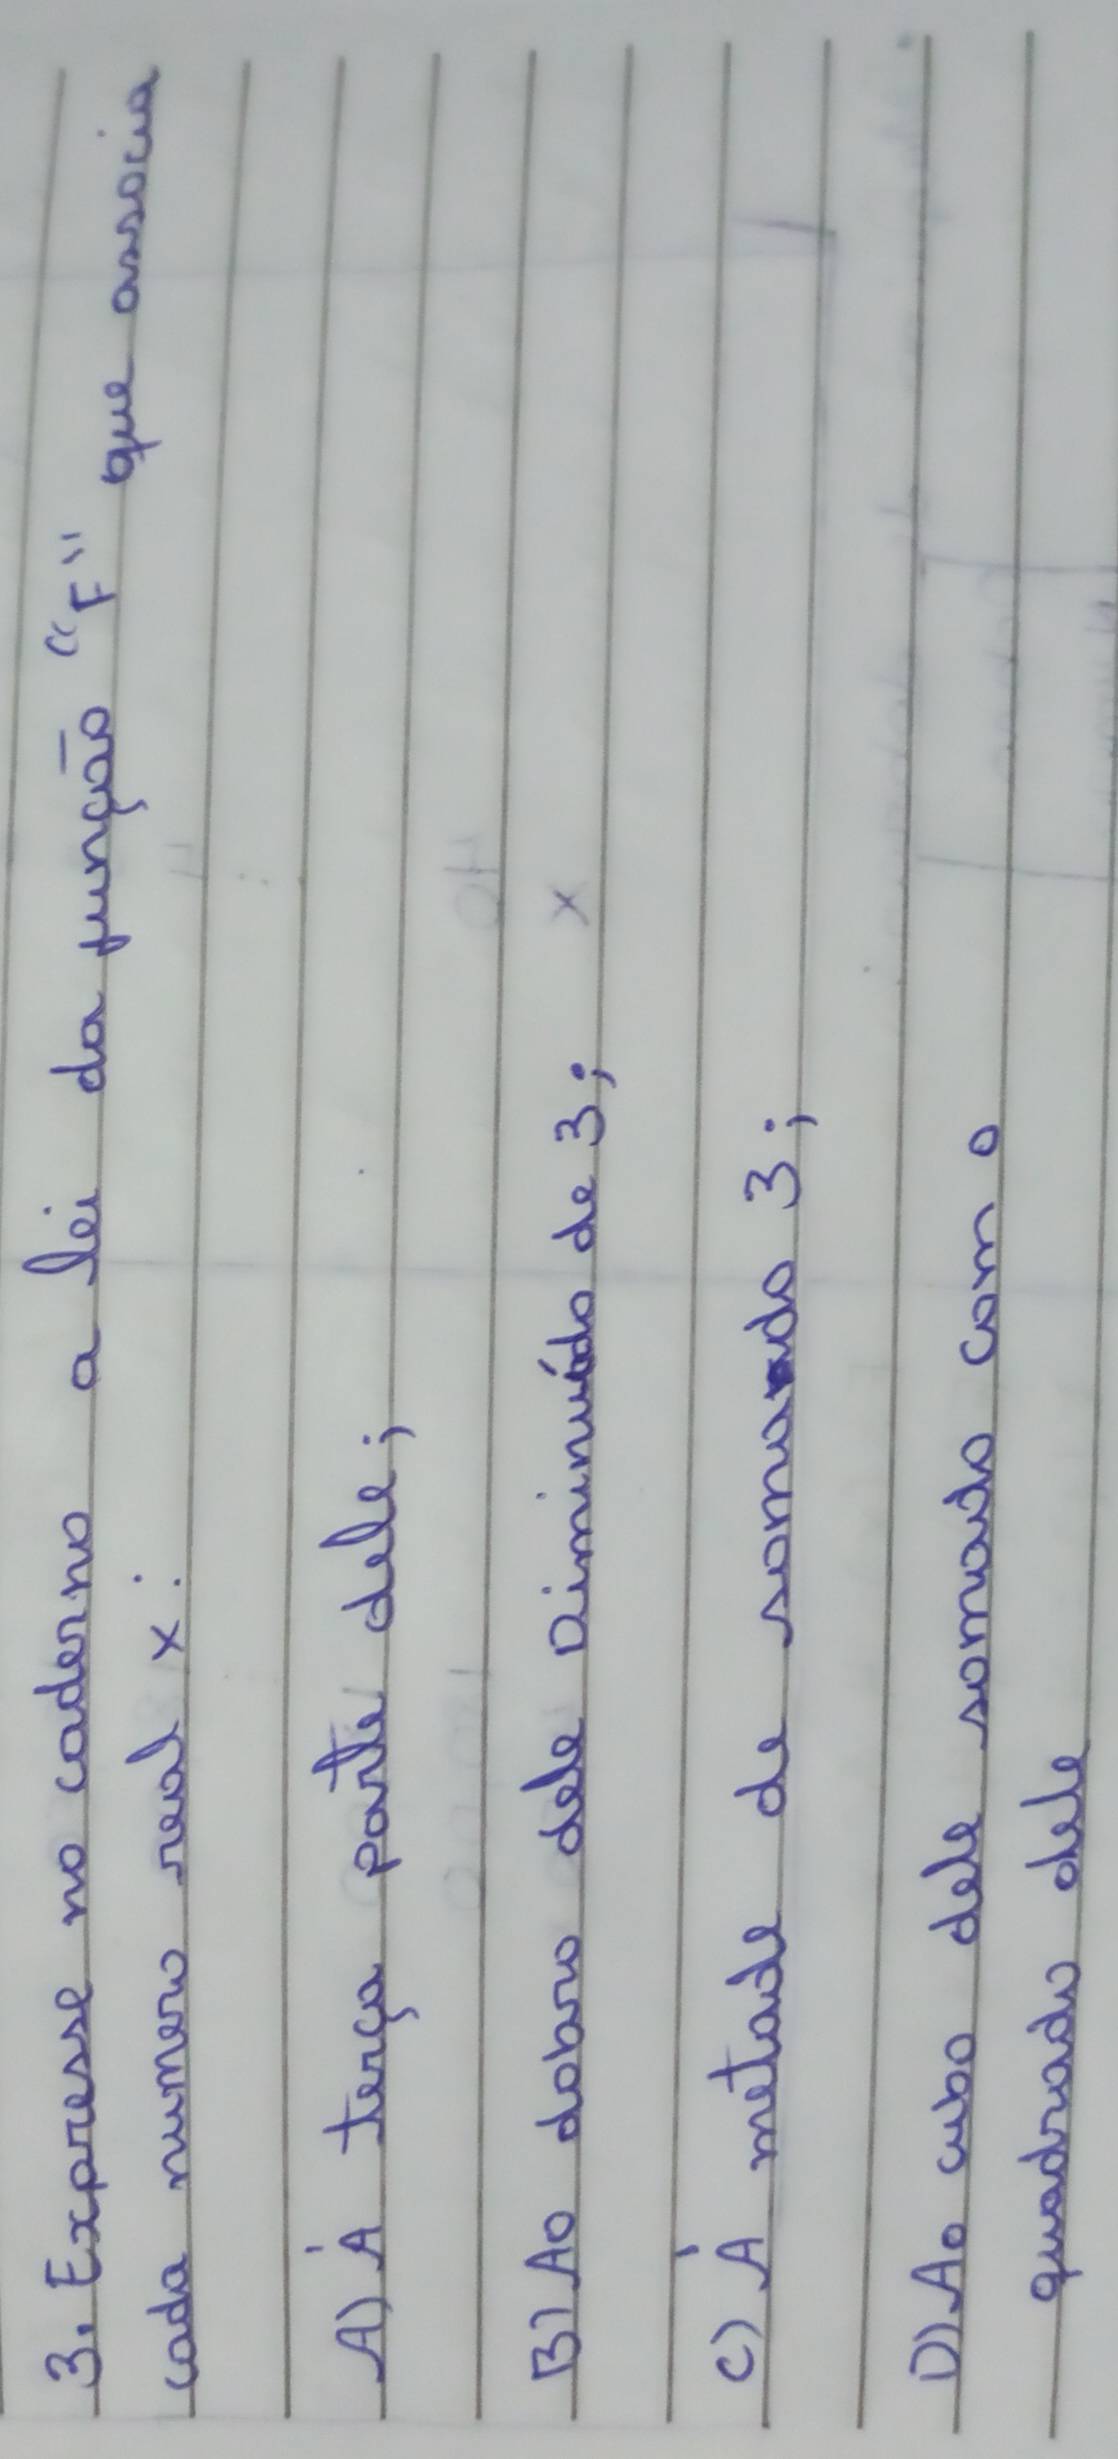 3. Expresse no caderno a lei da função "F" que associa
cada numero real x:
A) À terça parte dele;
B) Ao dobro dele Diminuído de 3;
C) À metade de somado 3;
D) Ao cubo dele somado com o
quadrado dele